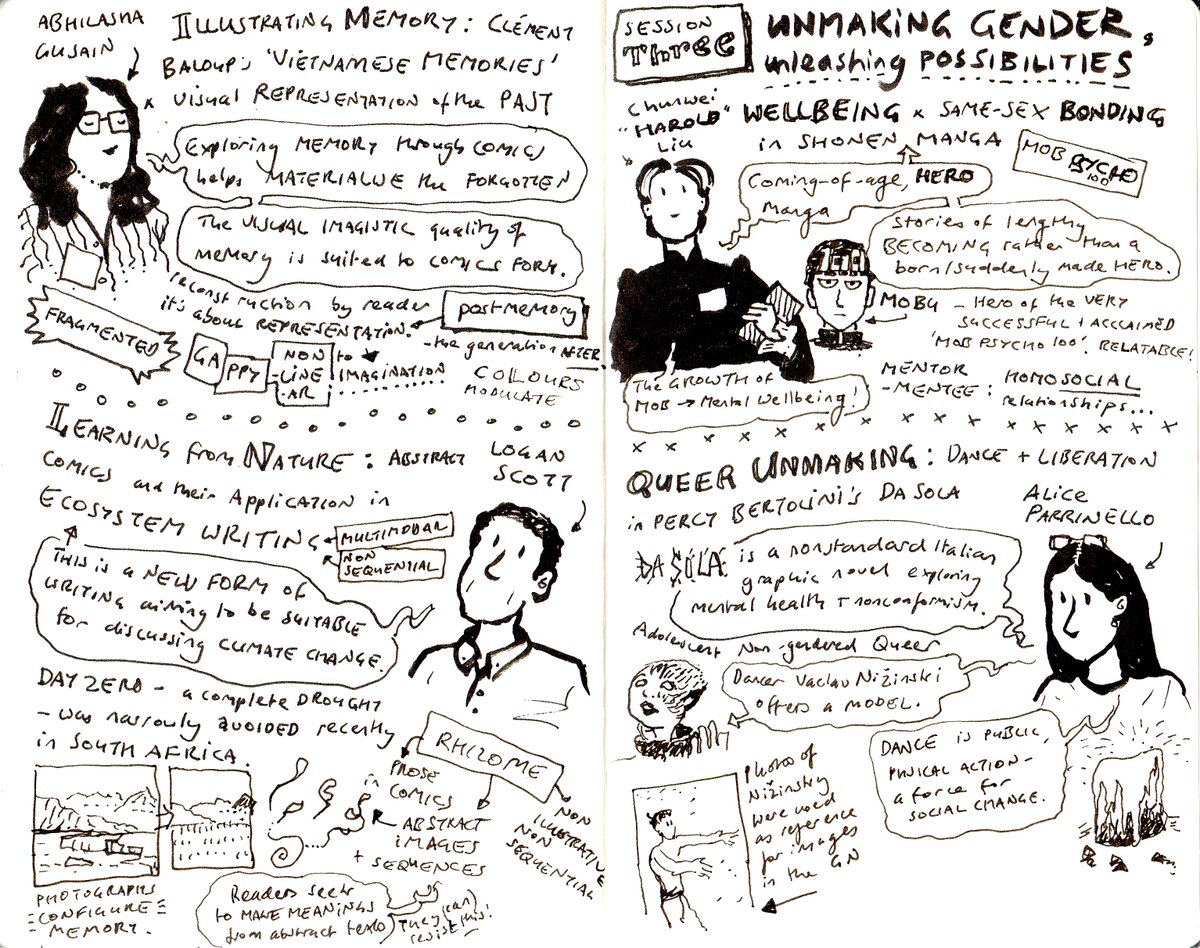 ABHILASHA
GUSAIN
ILLUSTRATING MEMORY: CLÉMENT
BALOUP'S 'VIETNAMESE MEMORIES'
x VISUAL REPRESENTATION of the PAST
Exploring MEMORY through COMICS
helps MATERIALIZE the FORGOTTEN
The VISUAL IMAGISTIC quality of
memory is suited to COMICS FORM.
reconstruction by reader
it's about REPRESENTATION.
postmemory
- the generation AFTER
FRAGMENTED
GA
PPY
NON
-LINE
-AR
to
IMAGINATION
COLOURS
MODULATE
LEARNING from NATURE: ABSTRACT
COMICS and their Application in
ECOSYSTEM WRITING
LOGAN
SCOTT
MULTIMODAL
NON
SEQUENTIAL
THIS is a NEW FORM OF
WRITING aiming to be SUITABLE
for discussing CLIMATE CHANGE.
DAY ZERO - a complete DROUGHT
- was narrowly avoided recently
in SOUTH AFRICA.
RHIZOME
in PROSE
COMICS
ABSTRACT
IMAGES
+ SEQUENCES
NON
ILLUSTRATIVE
NON
SEQUENTIAL
PHOTOGRAPHS
CONFIGURE
MEMORY.
Readers seek
to MAKE MEANINGS
from abstract texts
They (can)
resist this!
SESSION
Three
UNMAKING GENDER,
unleashing POSSIBILITIES
Chunwei
"HAROLD"
Liu
WELLBEING x SAME-SEX BONDING
in SHONEN MANGA
MOB PSYCHO
100
Coming-of-age, HERO
Manga
Stories of lengthy
BECOMING rather than a
born/suddenly made HERO.
MOBU - Hero of the VERY
SUCCESSFUL + ACCLAIMED
'MOB PSYCHO 100'. RELATABLE!
The GROWTH OF
MOB → Mental Wellbeing!
MENTOR
-MENTEE: HOMOSOCIAL
relationships...
QUEER UNMAKING: DANCE + LIBERATION
in PERCY BERTOLINI'S DA SOLA
ALICE
PARRINELLO
DA SOLA is a nonstandard Italian
graphic novel exploring
mental health + nonconformism.
Adolescent Non-gendered Queer
Dancer Vaclav Nižinski
offers a MODEL.
DANCE is PUBLIC,
PHYSICAL ACTION -
a force for
SOCIAL CHANGE.
Photos of
Nižinsky
were used
as reference
for images
in the GN